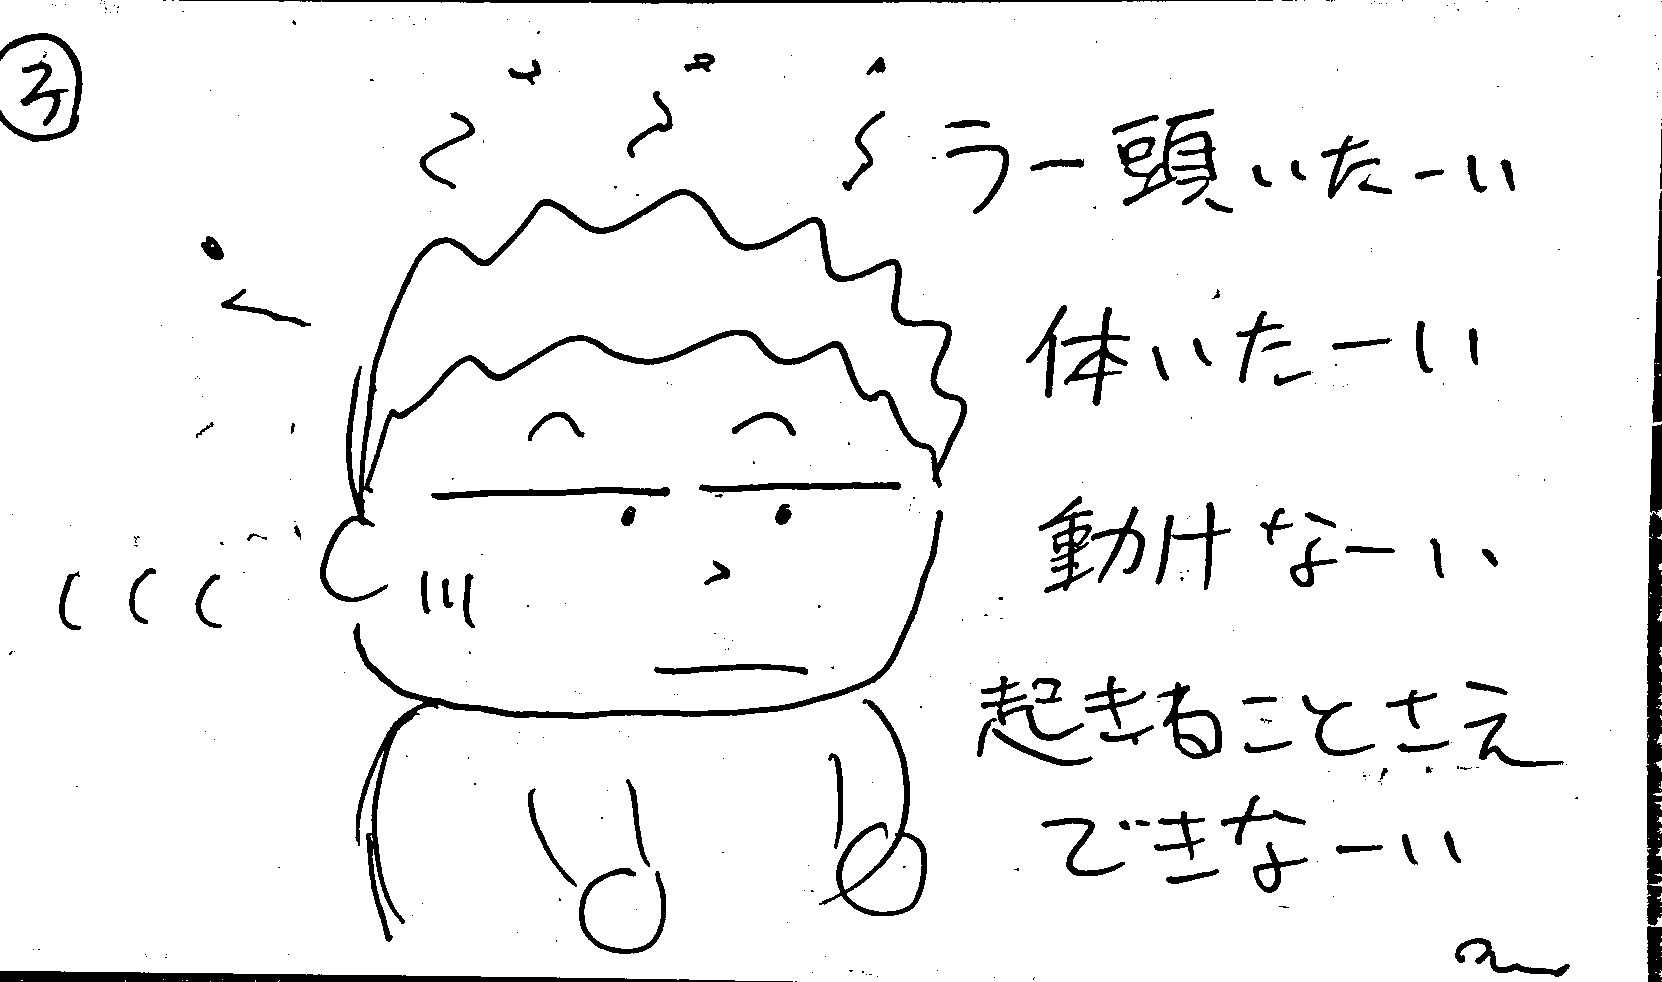 子
うー頭いたーい
体いたーい
動けなーい
起きることさえ
できなーい